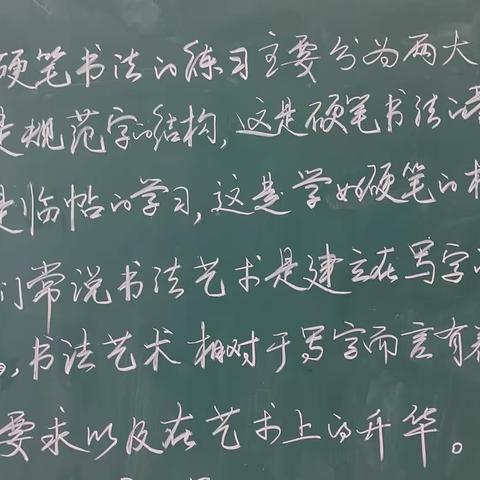 硬笔书法的练习主要分为两大
是规范字的结构，这是硬笔书法的
是临帖的学习，这是学好硬笔的
们常说书法艺术是建立在写字
，书法艺术相对于写字而言有
要求以及在艺术上的升华。